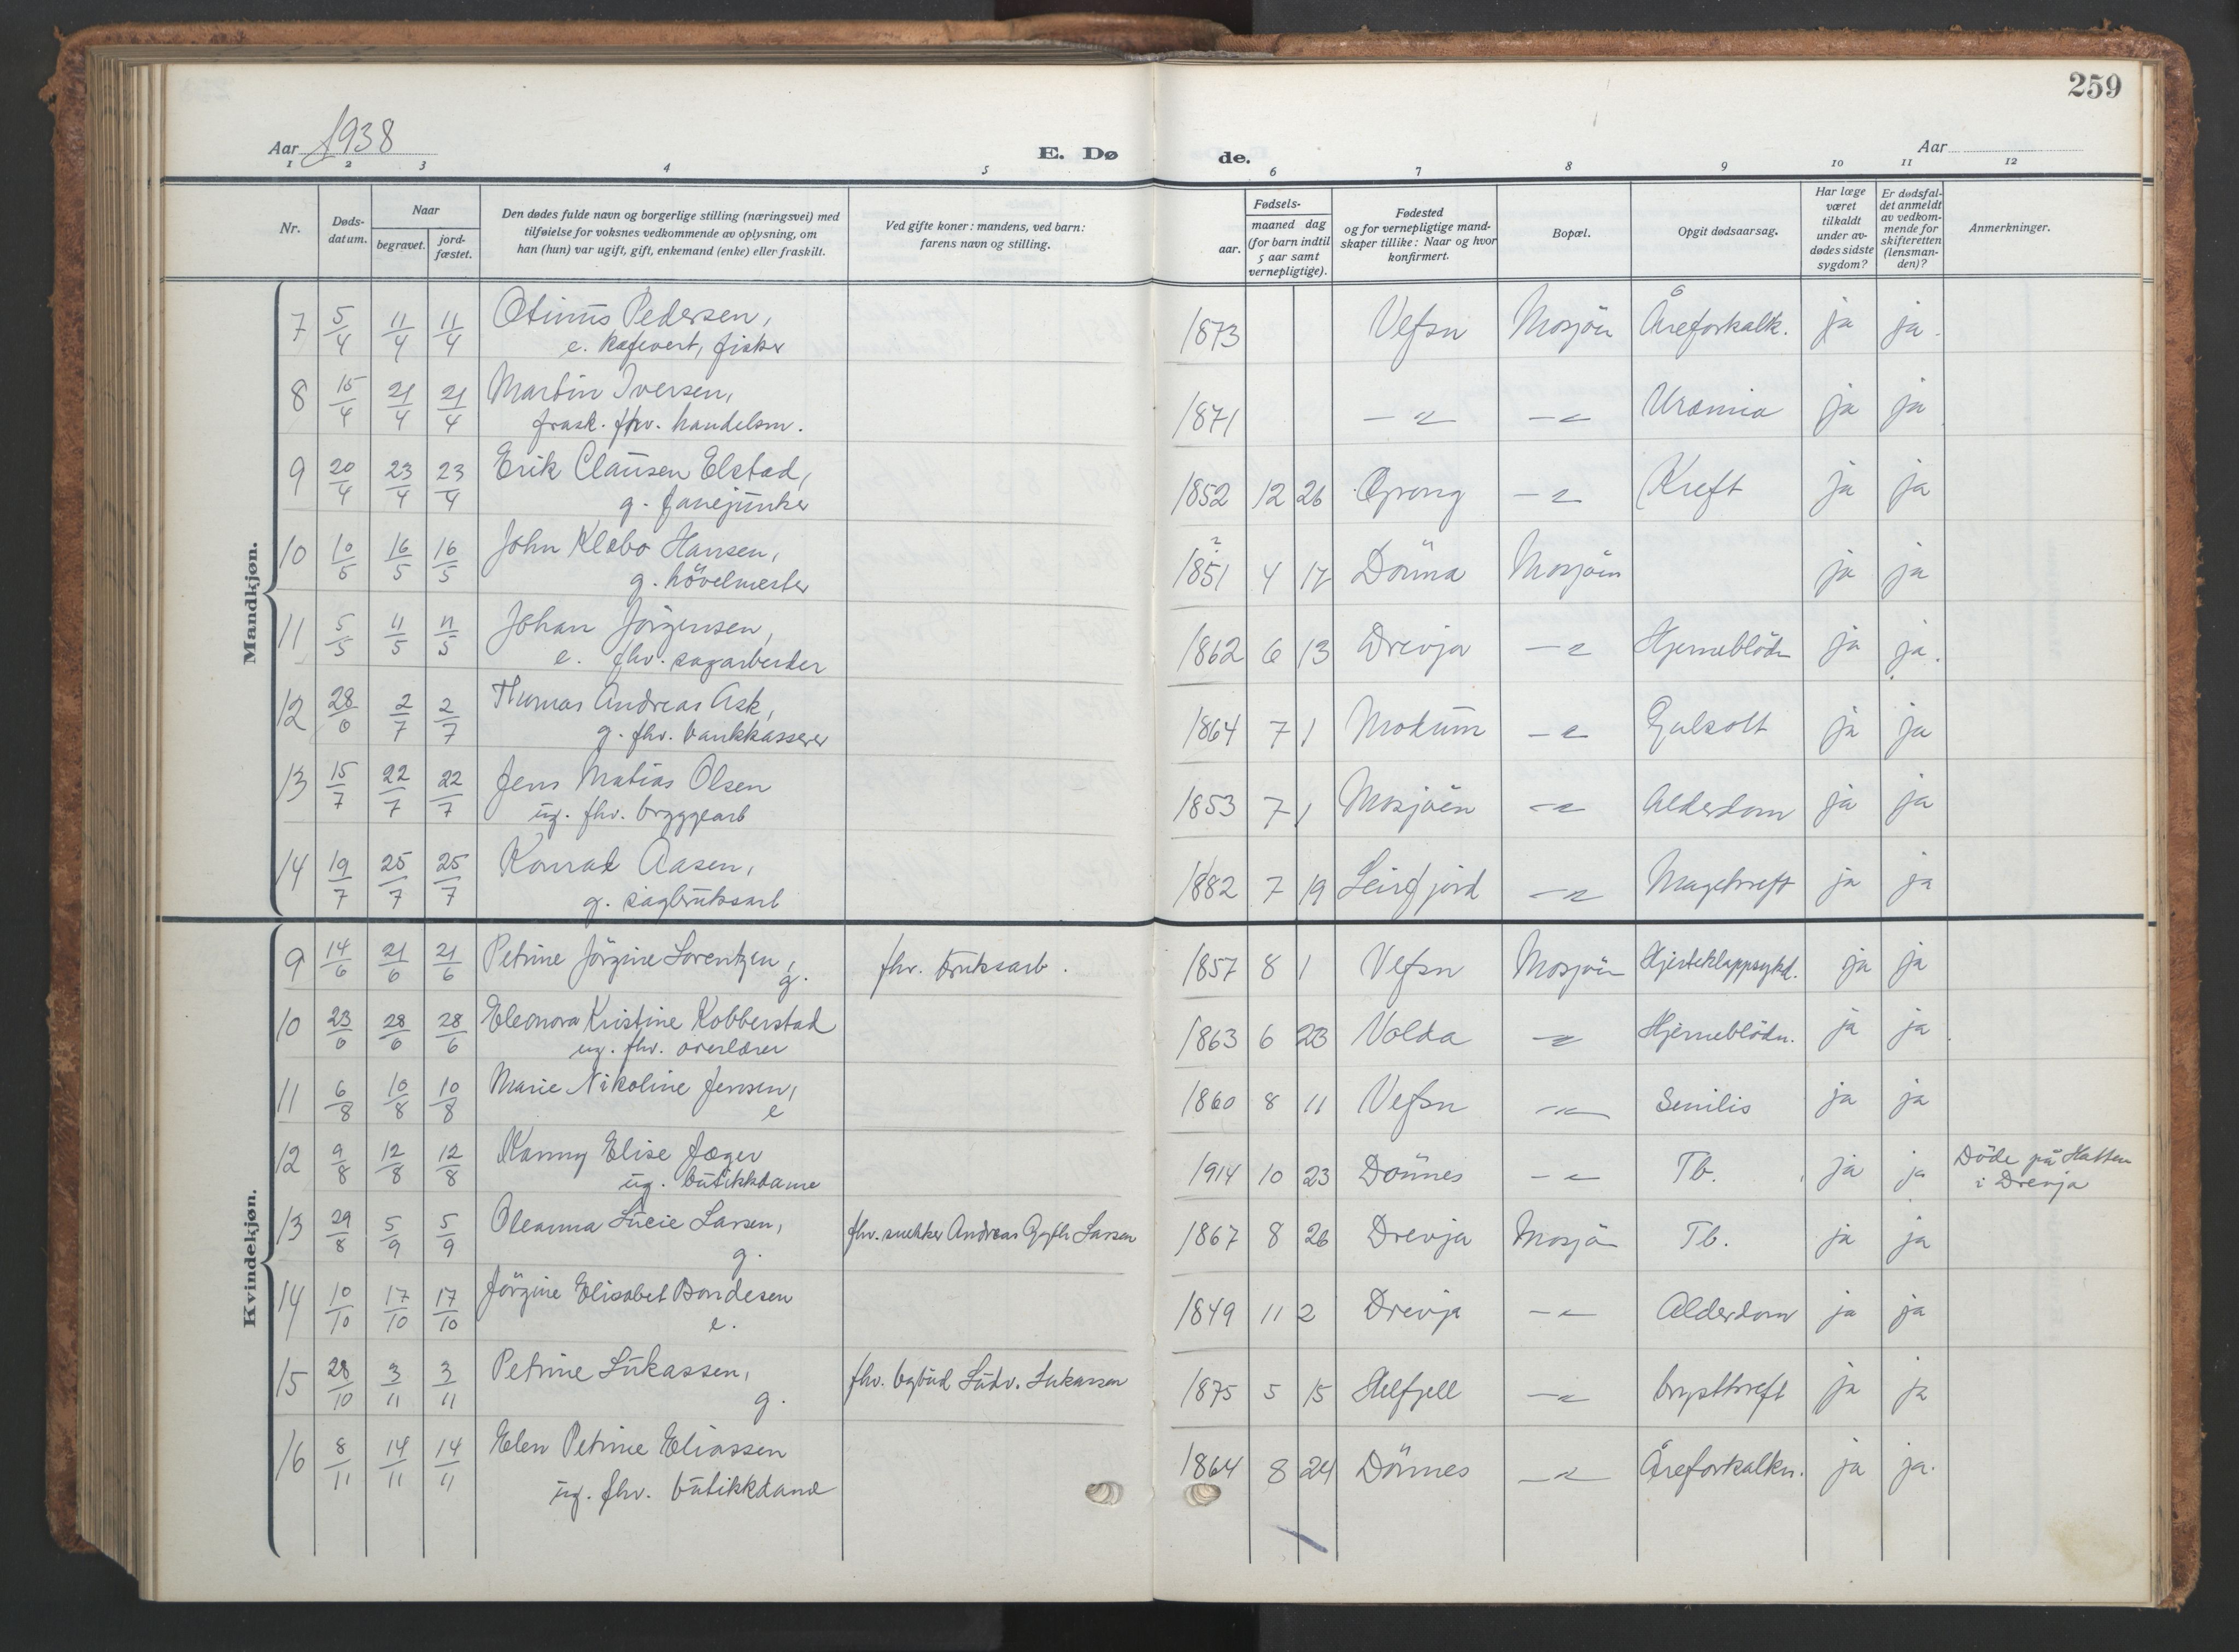 259
Aar 1938
E. Dø
de.
Aar
1 2 3 4 5 6 7 8 9 10 11 12
Nr.
Døds-datum.
Naar
begravet.
jord-fæstet.
Den dødes fulde navn og borgerlige stilling (næringsvei) med
tilføielse for voksnes vedkommende av oplysning, om
han (hun) var ugift, gift, enkemand (enke) eller fraskilt.
Ved gifte koner: mandens, ved barn:
farens navn og stilling.
Fødsels-
aar.
maaned dag
(for barn indtil
5 aar samt
vernepligtige).
Fødested
og for vernepligtige mand-
skaper tillike: Naar og hvor
konfirmert.
Bopæl.
Opgit dødsaarsag.
Har læge
været
tilkaldt
under av-
dødes sidste
sygdom?
Er dødsfal-
det anmeldt
av vedkom-
mende for
skifteretten
(lensman-
den)?
Anmerkninger.
Mandkjøn.
7 5/4 11/4 11/4 Otinus Pedersen, 1873 Vefsn Mosjöen Åreforkalk. ja ja.
e. kafevert, fisker
8 15/4 21/4 21/4 Martin Iversen, 1871 -"- -"- Uræmia ja ja
frask. fhv. handelsm.
9 20/4 23/4 23/4 Erik Clausen Elstad, 1852 12 26 Grong -"- Kreft ja ja
g. fanejunker
10 10/5 16/5 16/5 John Klæbo Hansen, 1851 ? 4 17 Dönna Mosjöen ja ja
g. hövelmester
11 5/5 11/5 11/5 Johan Jörgensen, 1862 6 13 Drevja -"- Hjerneblödn ja ja.
e. fhv. sagarbeider
12 28/6 2/7 2/7 Thomas Andreas Ask, 1864 7 1 Modum -"- Gulsott ja ja
g. fhv. bankkasserer
13 15/7 22/7 22/7 Jens Matias Olsen 1853 7 1 Mosjöen -"- Alderdom ja ja
ug. fhv. bryggearb
14 19/7 25/7 25/7 Konrad Aasen, 1882 7 19 Leirfjord -"- Magekreft ja ja
g. sagbruksarb
Kvindekjøn.
9 14/6 21/6 21/6 Petrine Jörgine Lorentzen, g. fhv. bruksarb. 1857 8 1 Vefsn Mosjöen Hjerteklappsykd. ja ja
10 23/6 28/6 28/6 Eleonora Kristine Kobberstad 1863 6 23 Volda -"- Hjerneblödn. ja ja
ug. fhv. overlærer
11 6/8 10/8 10/8 Marie Nikoline Jensen, 1860 8 11 Vefsn -"- Senilis ja ja
e
12 9/8 12/8 12/8 Nanny Elise Jæger 1914 10 23 Dönnes -"- Tb. ja ja Döde på Hatten
ug. butikkdame i Drevja
13 29/8 5/9 5/9 Oleanna Lucie Larsen, fhv. snekker Andreas Larsen 1867 8 26 Drevja Mosjö Tb. ja ja
g.
14 10/10 17/10 17/10 Jörgine Elisabet Bondesen 1849 11 2 Drevja -"- Alderdom ja ja
e.
15 28/10 3/11 3/11 Petrine Lukassen, fhv. bybud Ludv. Lukassen 1875 5 15 Helfjell -"- brystkreft ja ja
g.
16 8/11 14/11 14/11 Elen Petrine Eliassen 1864 8 24 Dönnes -"- Åreforkalkn. ja ja.
ug. fhv. butikkdame